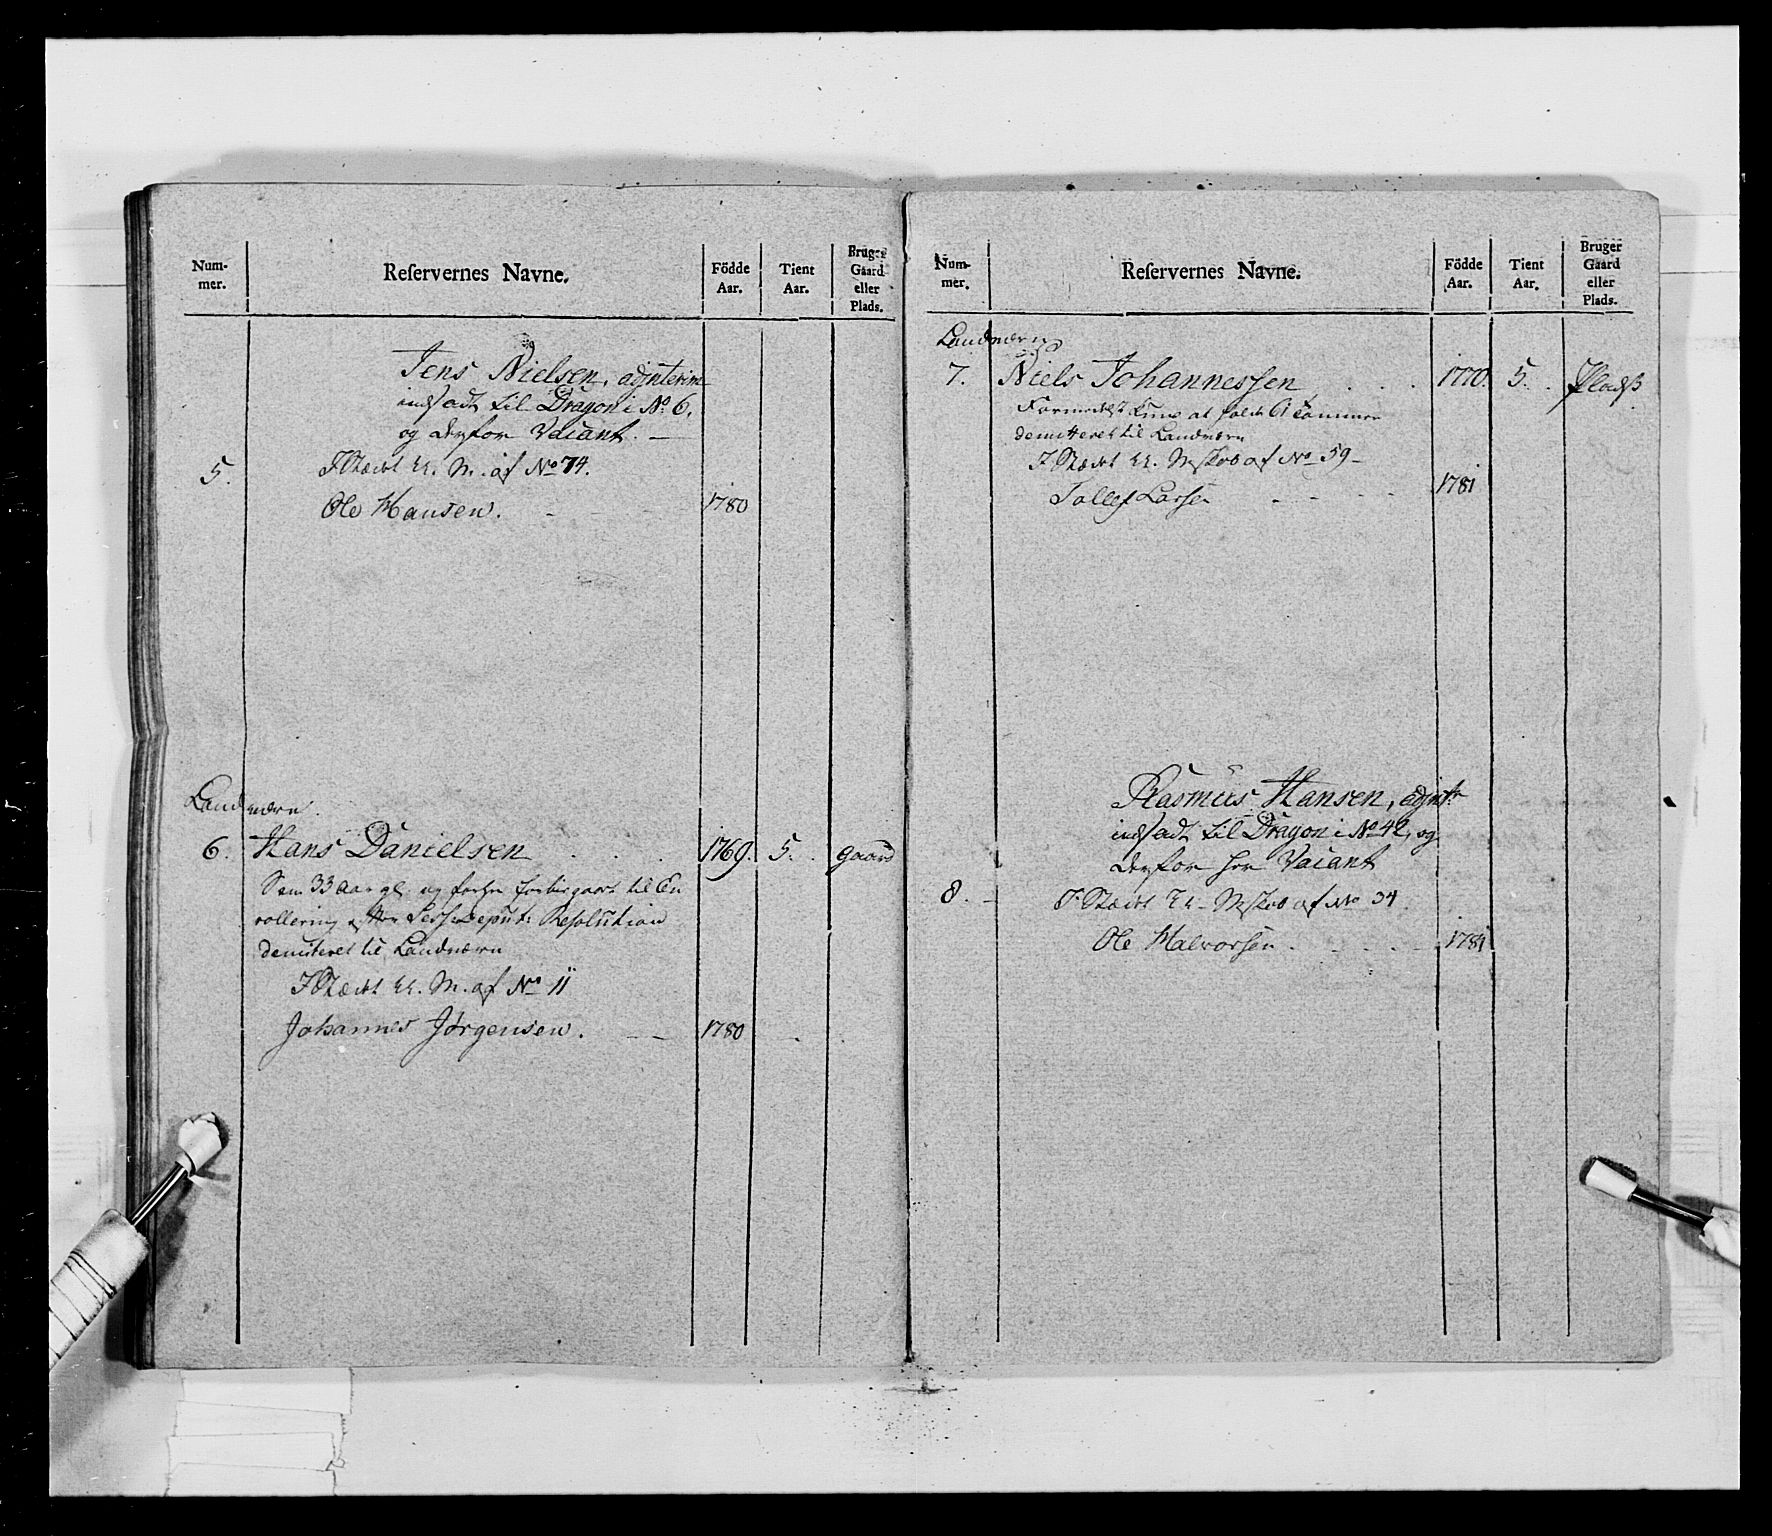 Num-
mer.
Reservernes Navne.
Födde
Aar.
Tient
Aar.
Bruger
Gaard
eller
Plads.
Jens Nielsen, adjnterim
indsadt til Dragon i No. 6,
og derfor Vacant. —
5.
I Stædet M. af No 74.
Ole Hansen. 1780
Landværn.
6. Hans Danielsen 1769. 5. gaard
Som 33 Aar gl. og til En
rollering Sess: Deput: Resolution
demiteret til Landværn
I Stædet M. af No 11
Johannes Jørgensen. 1780
Num-
mer.
Reservernes Navne.
Födde
Aar.
Tient
Aar.
Bruger
Gaard
eller
Plads.
Landværn
7. Niels Johannessen 1770. 5. Pladß
Formedelst Kuns at holde 61 Tommer
demitteret til Landværn
I Stædet af No 59
Tollef Larsen 1781
Rasmus Hansen, adjntr
indsadt til Dragon i No 42, og
derfor her Vacant
8.
I Stædet af No 34
Ole Halvorsen. 1781